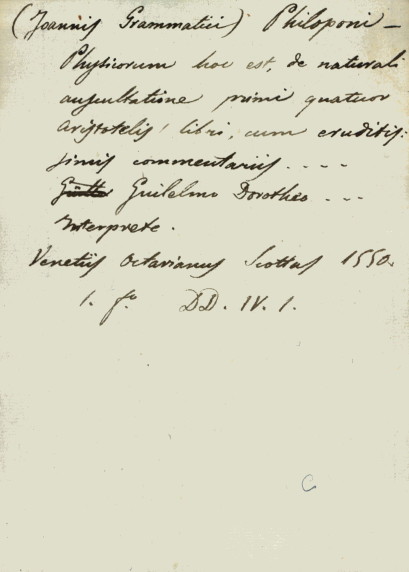 (Joannis Grammatici) Philoponi –
Physicorum hoc est, de naturali
auscultatione primi quatuor
Aristotelis libri, cum eruditis:
simis commentariis . . . .
Guilelmo Dorotheo . . .
Interprete.
Venetiis Octavianus Scottus 1550.
1. fo DD. IV. 1.
C